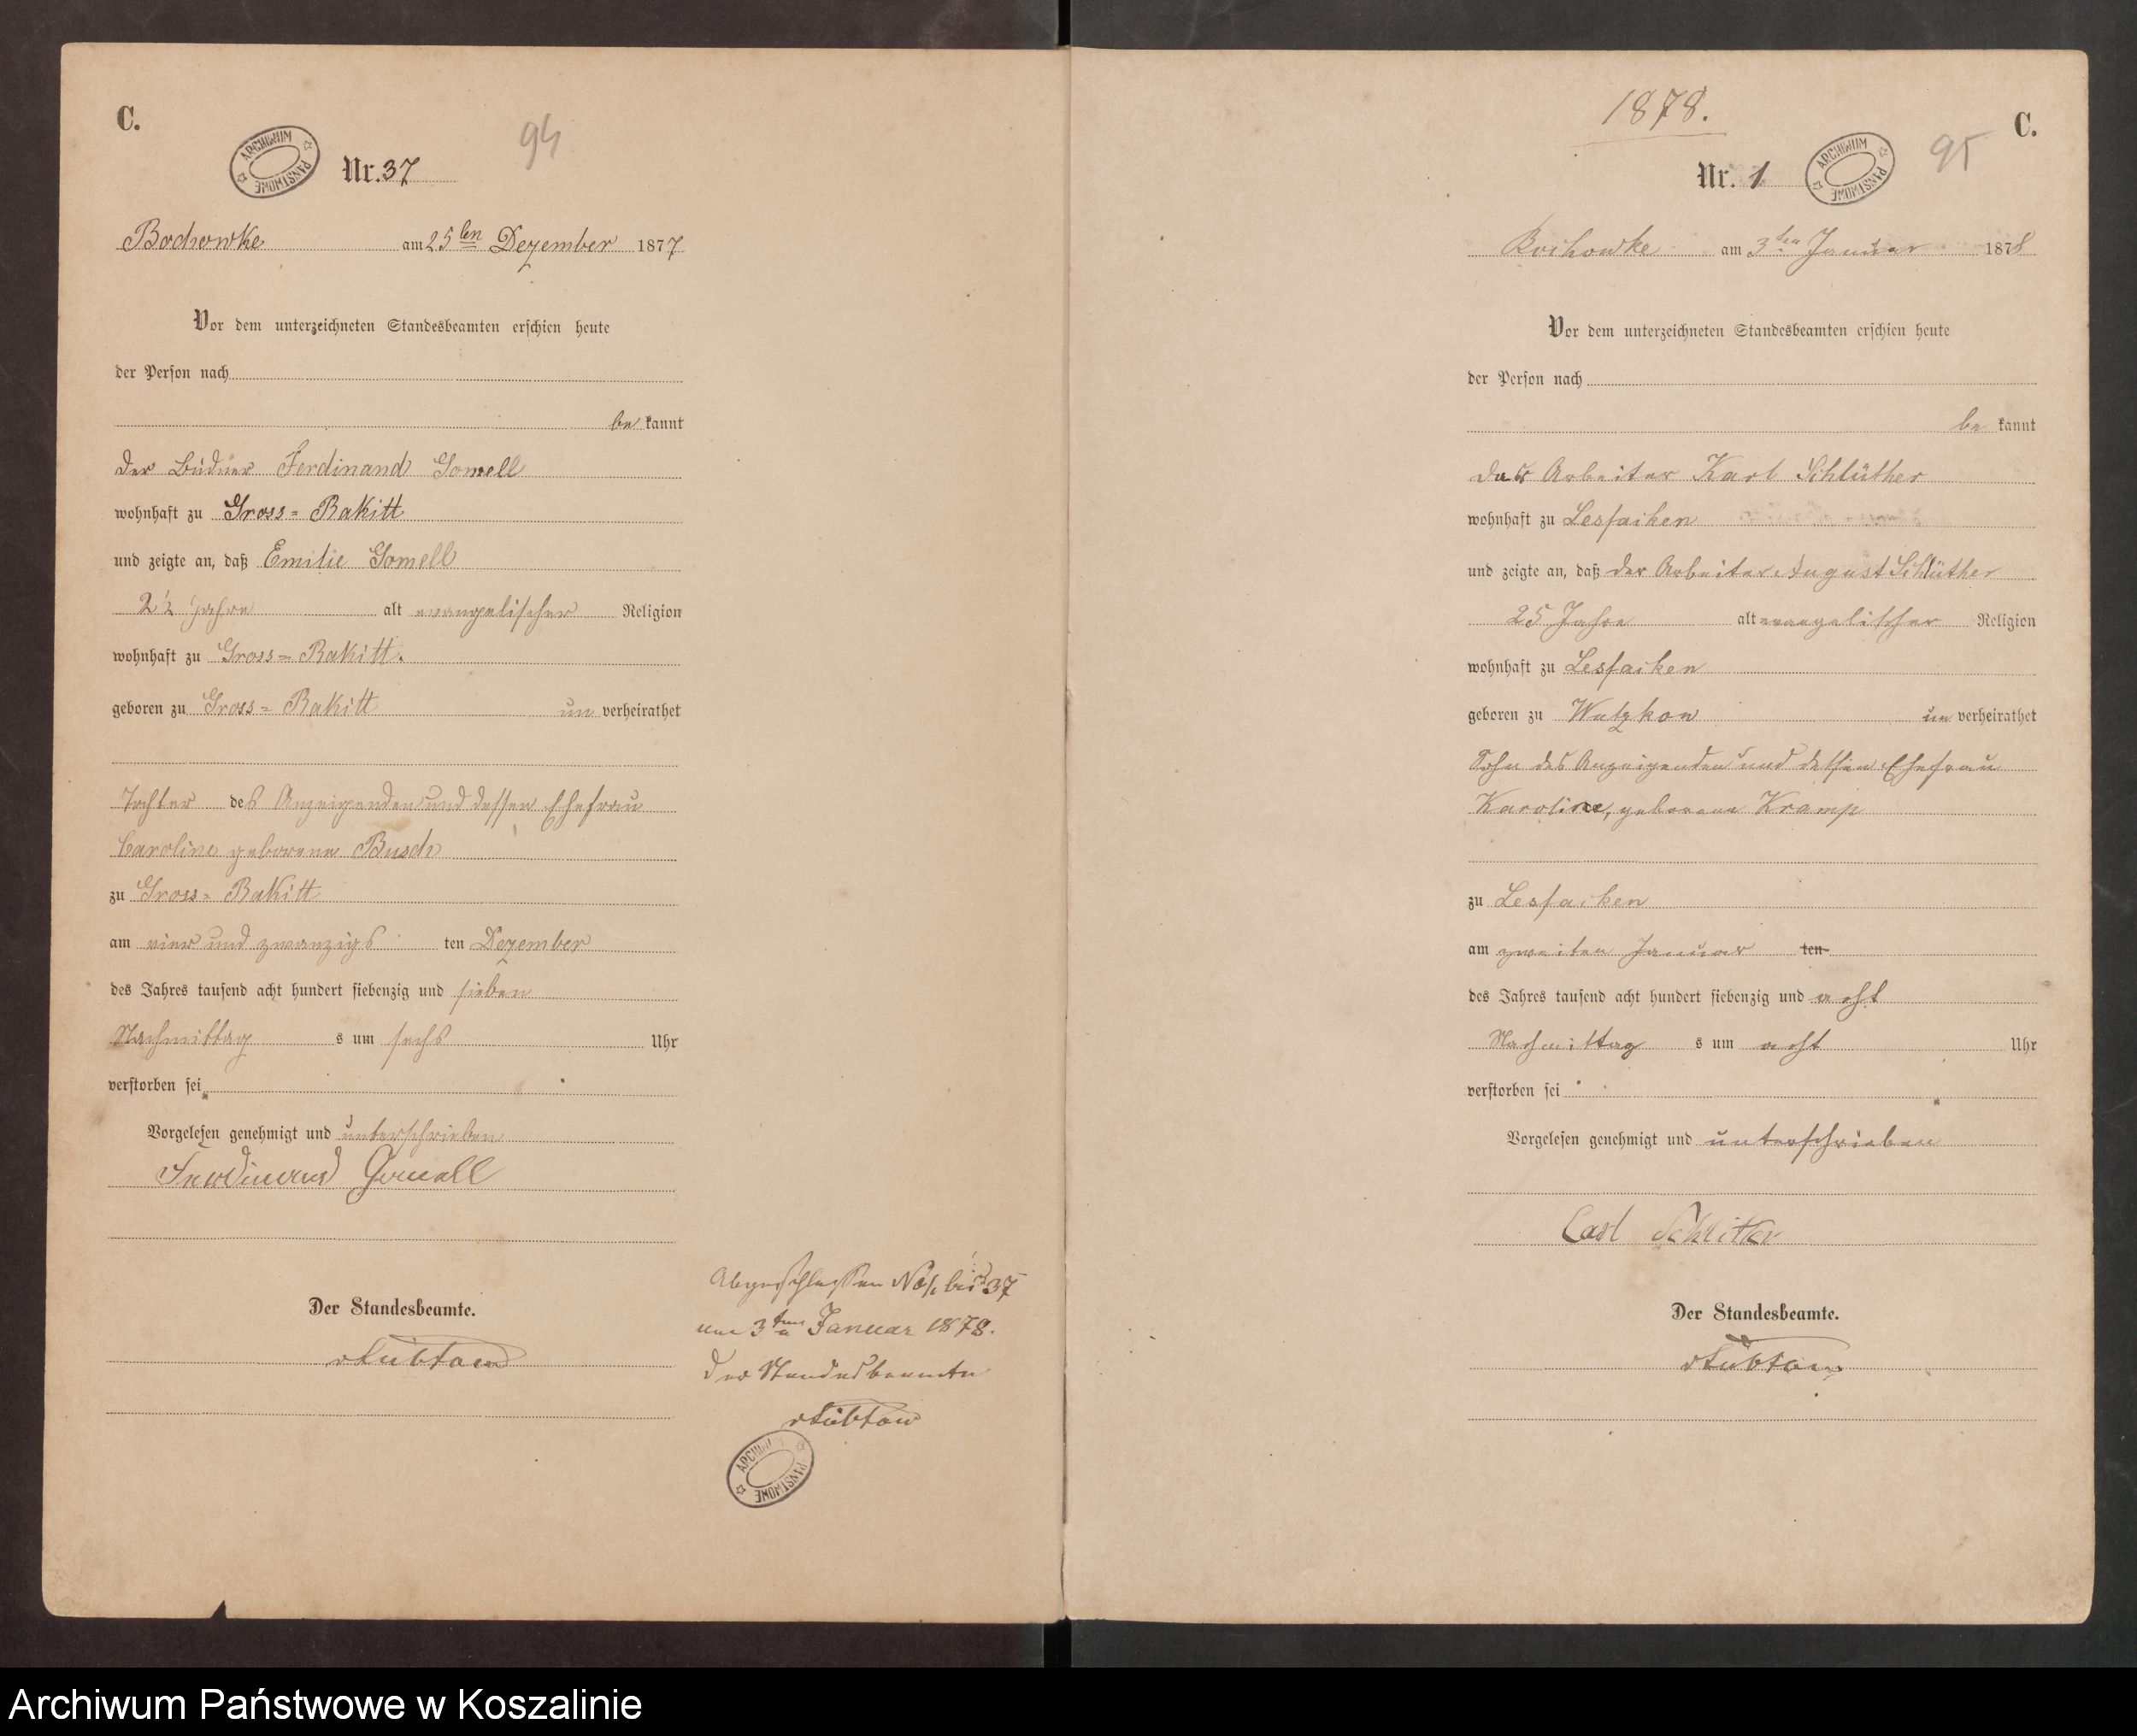 C.
94
ARCHIWUM PAŃSTWOWE
Nr. 37
Bochowke am 25ten Dezember 1877
Vor dem unterzeichneten Standesbeamten erschien heute
der Person nach
be kannt
der Büdner Ferdinand Gomell
wohnhaft zu Gross-Rakitt
und zeigte an, daß Emilie Gomell
2½ Jahre alt evangelischer Religion
wohnhaft zu Gross-Rakitt.
geboren zu Gross-Rakitt un verheirathet
Tochter des Anzeigenden und dessen Ehefrau
Caroline geborene Busch
zu Gross-Rakitt
am vier und zwanzigs ten Dezember
des Jahres tausend acht hundert siebenzig und sieben
Nachmittag s um sechs Uhr
verstorben sei
Vorgelesen genehmigt und unterschrieben
Ferdinand Gomell
Der Standesbeamte.
Abgeschlossen No 1 bis 37
am 3ten Januar 1878.
Der Standesbeamte
ARCHIWUM PAŃSTWOWE
1878.
C.
95
Nr. 1
ARCHIWUM PAŃSTWOWE
Bochowke am 3ten Januar 1878
Vor dem unterzeichneten Standesbeamten erschien heute
der Person nach
be kannt
der Arbeiter Karl Schlüther
wohnhaft zu Lessaiken
und zeigte an, daß der Arbeiter August Schlüther
25 Jahre alt evangelischer Religion
wohnhaft zu Lessaiken
geboren zu Wutzkow un verheirathet
Sohn des Anzeigenden und dessen Ehefrau
Karoline, geborene Kramp
zu Lessaiken
am zweiten Januar ten
des Jahres tausend acht hundert siebenzig und acht
Nachmittag s um acht Uhr
verstorben sei
Vorgelesen genehmigt und unterschrieben
Carl Schlitter
Der Standesbeamte.
Archiwum Państwowe w Koszalinie